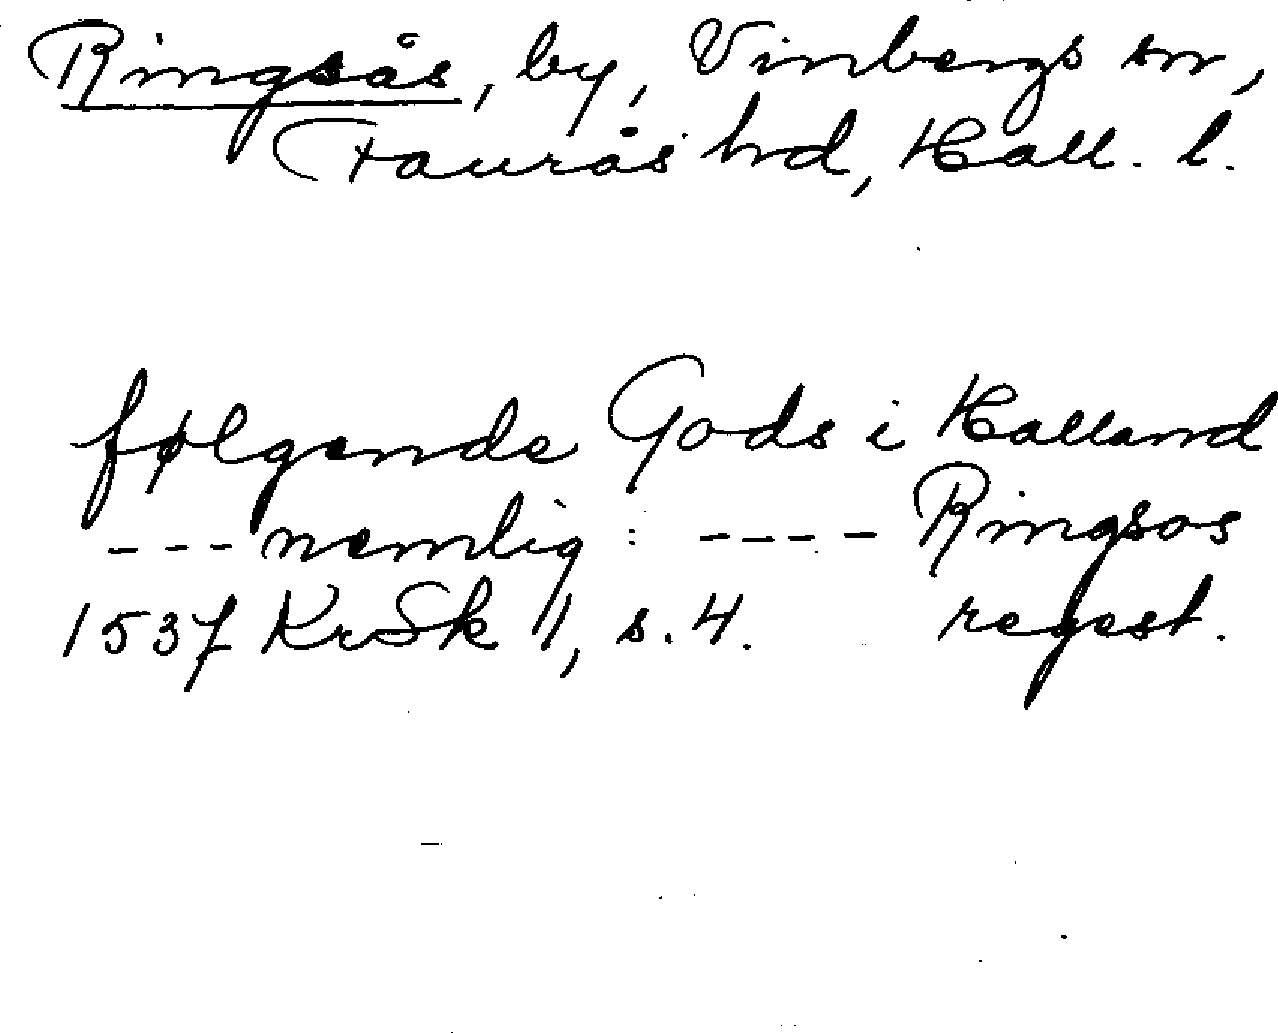 Ringsås, by, Vinbergs sn,
Faurås hd, Hall. l.
følgende Gods i Halland
--- nemlig: ---- Ringsos
1537 KrSk II, s. 4. regest.